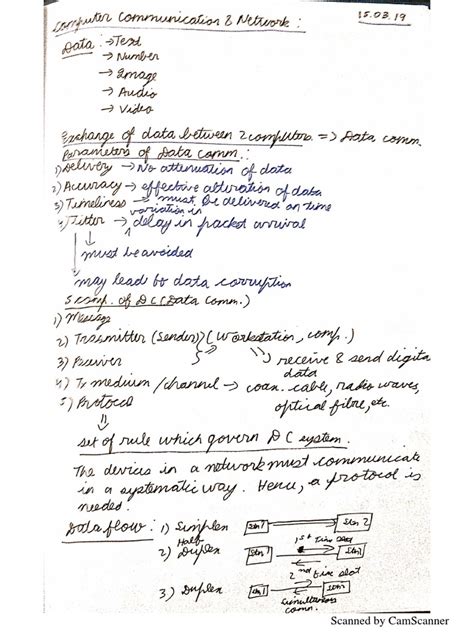 Computer Communication & Network :
15.03.19
Data : → Text
→ Number
→ Image
→ Audio
→ Video
Exchange of data between 2 computers. => Data comm.
Parameters of Data Comm. :
1) Delivery → No attenuation of data
2) Accuracy → effective alteration of data
3) Timeliness → must be delivered on time
4) Jitter → variation in delay in packet arrival
must be avoided
may lead to data corruption
5 comp. of DC (Data Comm.)
1) Message
2) Trasmitter (Sender) (Workstation, comp.)
3) Receiver
receive & send digita
data
4) Tr medium / channel → coax. cable, radio waves,
optical fibre, etc.
5) Protocol
set of rule which govern DC system.
The devices in a network must communicate
in a systematic way. Hence, a protocol is
needed.
Data flow : 1) Simplex Stn 1 Stn 2
2) Half Duplex Stn 1 1st time slot Stn
2nd time slot
3) Duplex Stn 1 Stn
Simultaneous
comm.
Scanned by CamScanner